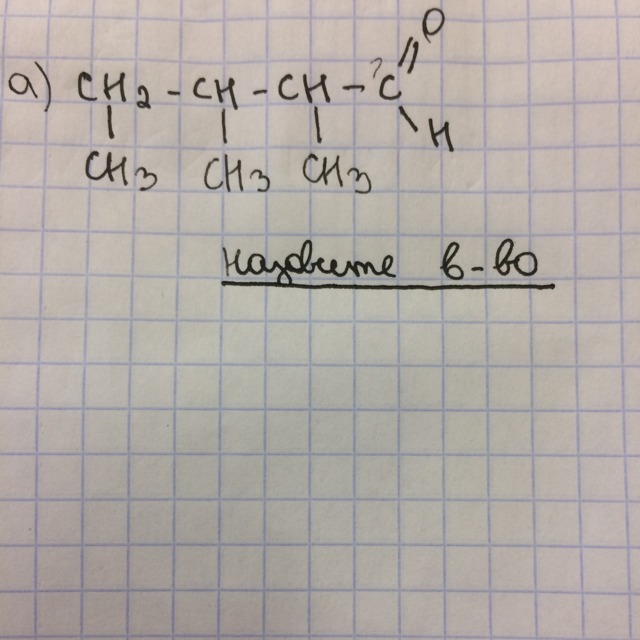 O
а) CH2 - CH - CH - C
H
CH3 CH3 CH3
назовите в-во